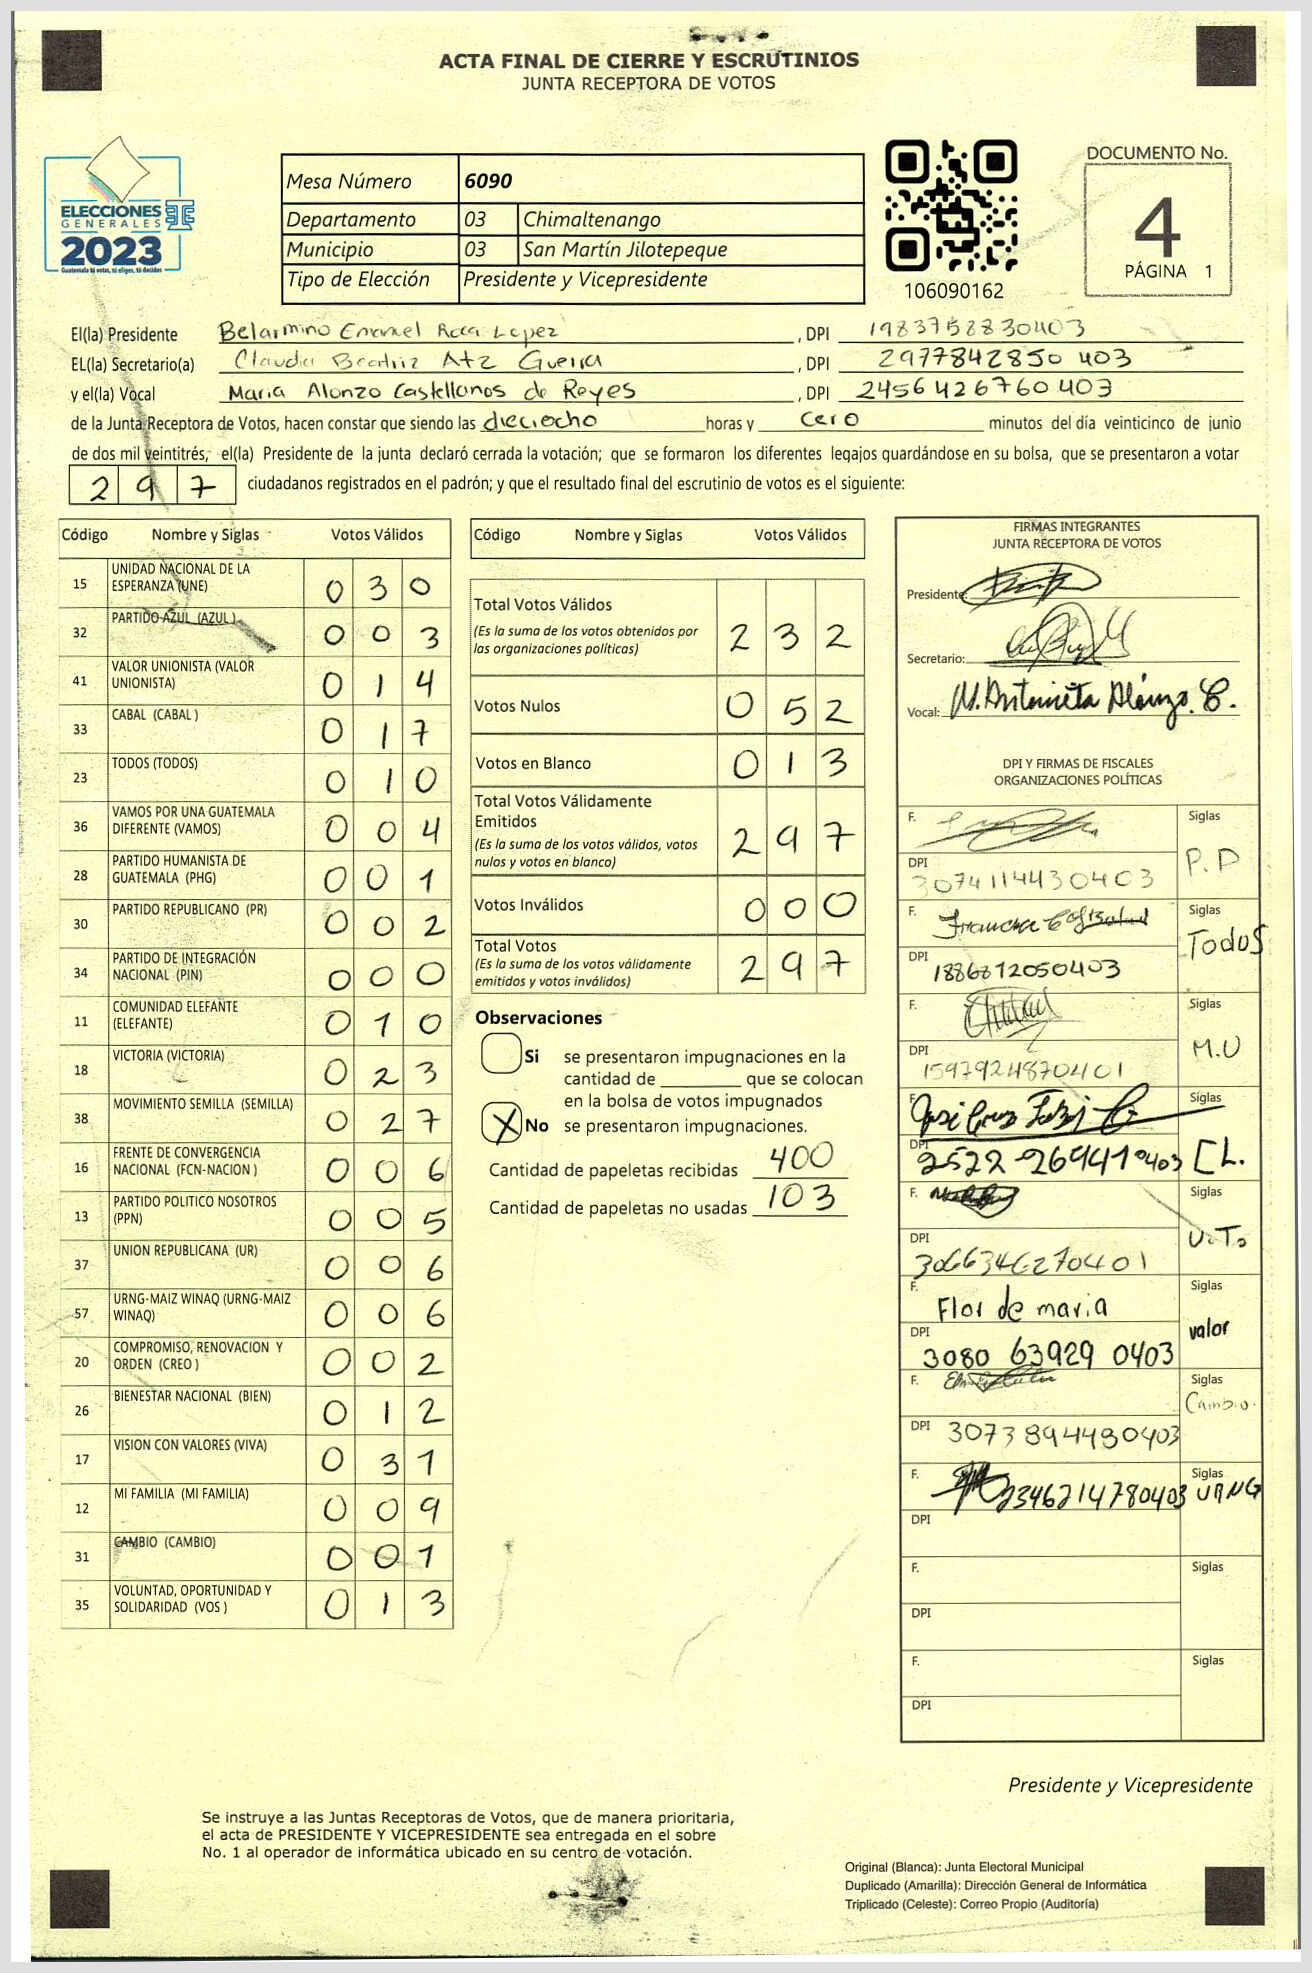 ACTA FINAL DE CIERRE Y ESCRUTINIOS
JUNTA RECEPTORA DE VOTOS
ELECCIONES
GENERALES
2023
Guatemala tú votas, tú eliges, tú decides
Mesa Número 6090
Departamento 03 Chimaltenango
Municipio 03 San Martín Jilotepeque
Tipo de Elección Presidente y Vicepresidente
106090162
DOCUMENTO No.
4
PÁGINA 1
El(la) Presidente Belarmino Emanuel Roca Lopez , DPI 1983758830403
EL(la) Secretario(a) Claudia Beatriz Atz Guerra , DPI 2977842850 403
y el(la) Vocal Maria Alonzo Castellanos de Reyes , DPI 2456426760403
de la Junta Receptora de Votos, hacen constar que siendo las dieciocho horas y cero minutos del día veinticinco de junio
de dos mil veintitrés, el(la) Presidente de la junta declaró cerrada la votación; que se formaron los diferentes legajos guardándose en su bolsa, que se presentaron a votar
297 ciudadanos registrados en el padrón; y que el resultado final del escrutinio de votos es el siguiente:
Código Nombre y Siglas Votos Válidos
15 UNIDAD NACIONAL DE LA ESPERANZA (UNE) 030
32 PARTIDO AZUL (AZUL) 003
41 VALOR UNIONISTA (VALOR UNIONISTA) 014
33 CABAL (CABAL ) 017
23 TODOS (TODOS) 010
36 VAMOS POR UNA GUATEMALA DIFERENTE (VAMOS) 004
28 PARTIDO HUMANISTA DE GUATEMALA (PHG) 001
30 PARTIDO REPUBLICANO (PR) 002
34 PARTIDO DE INTEGRACIÓN NACIONAL (PIN) 000
11 COMUNIDAD ELEFANTE (ELEFANTE) 010
18 VICTORIA (VICTORIA) 023
38 MOVIMIENTO SEMILLA (SEMILLA) 027
16 FRENTE DE CONVERGENCIA NACIONAL (FCN-NACION ) 006
13 PARTIDO POLITICO NOSOTROS (PPN) 005
37 UNION REPUBLICANA (UR) 006
57 URNG-MAIZ WINAQ (URNG-MAIZ WINAQ) 006
20 COMPROMISO, RENOVACION Y ORDEN (CREO ) 002
26 BIENESTAR NACIONAL (BIEN) 012
17 VISION CON VALORES (VIVA) 031
12 MI FAMILIA (MI FAMILIA) 009
31 CAMBIO (CAMBIO) 001
35 VOLUNTAD, OPORTUNIDAD Y SOLIDARIDAD (VOS ) 013
Código Nombre y Siglas Votos Válidos
Total Votos Válidos 232
(Es la suma de los votos obtenidos por
las organizaciones políticas)
Votos Nulos 052
Votos en Blanco 013
Total Votos Válidamente
Emitidos 297
(Es la suma de los votos válidos, votos
nulos y votos en blanco)
Votos Inválidos 000
Total Votos 297
(Es la suma de los votos válidamente
emitidos y votos inválidos)
Observaciones
Si se presentaron impugnaciones en la
cantidad de ________ que se colocan
en la bolsa de votos impugnados
X No se presentaron impugnaciones.
Cantidad de papeletas recibidas 400
Cantidad de papeletas no usadas 103
FIRMAS INTEGRANTES
JUNTA RECEPTORA DE VOTOS
Presidente:
Secretario:
Vocal: M. Antonieta Alonzo. C.
DPI Y FIRMAS DE FISCALES
ORGANIZACIONES POLÍTICAS
F. Siglas
P.P
DPI
3074114430403
F. Siglas
Todos
DPI
1886812050403
F. Siglas
M.U
DPI
1597924870401
F. Siglas
DPI
2522-269410403 CL.
F. Siglas
DPI
3066346270401
F. Siglas
Flor de maria valor
DPI
3080 63929 0403
F. Siglas
Cambio.
DPI 3073894480403
F. Siglas
2346214780403 URNG
DPI
F. Siglas
DPI
F. Siglas
DPI
Presidente y Vicepresidente
Se instruye a las Juntas Receptoras de Votos, que de manera prioritaria,
el acta de PRESIDENTE Y VICEPRESIDENTE sea entregada en el sobre
No. 1 al operador de informática ubicado en su centro de votación.
Original (Blanca): Junta Electoral Municipal
Duplicado (Amarilla): Dirección General de Informática
Triplicado (Celeste): Correo Propio (Auditoría)